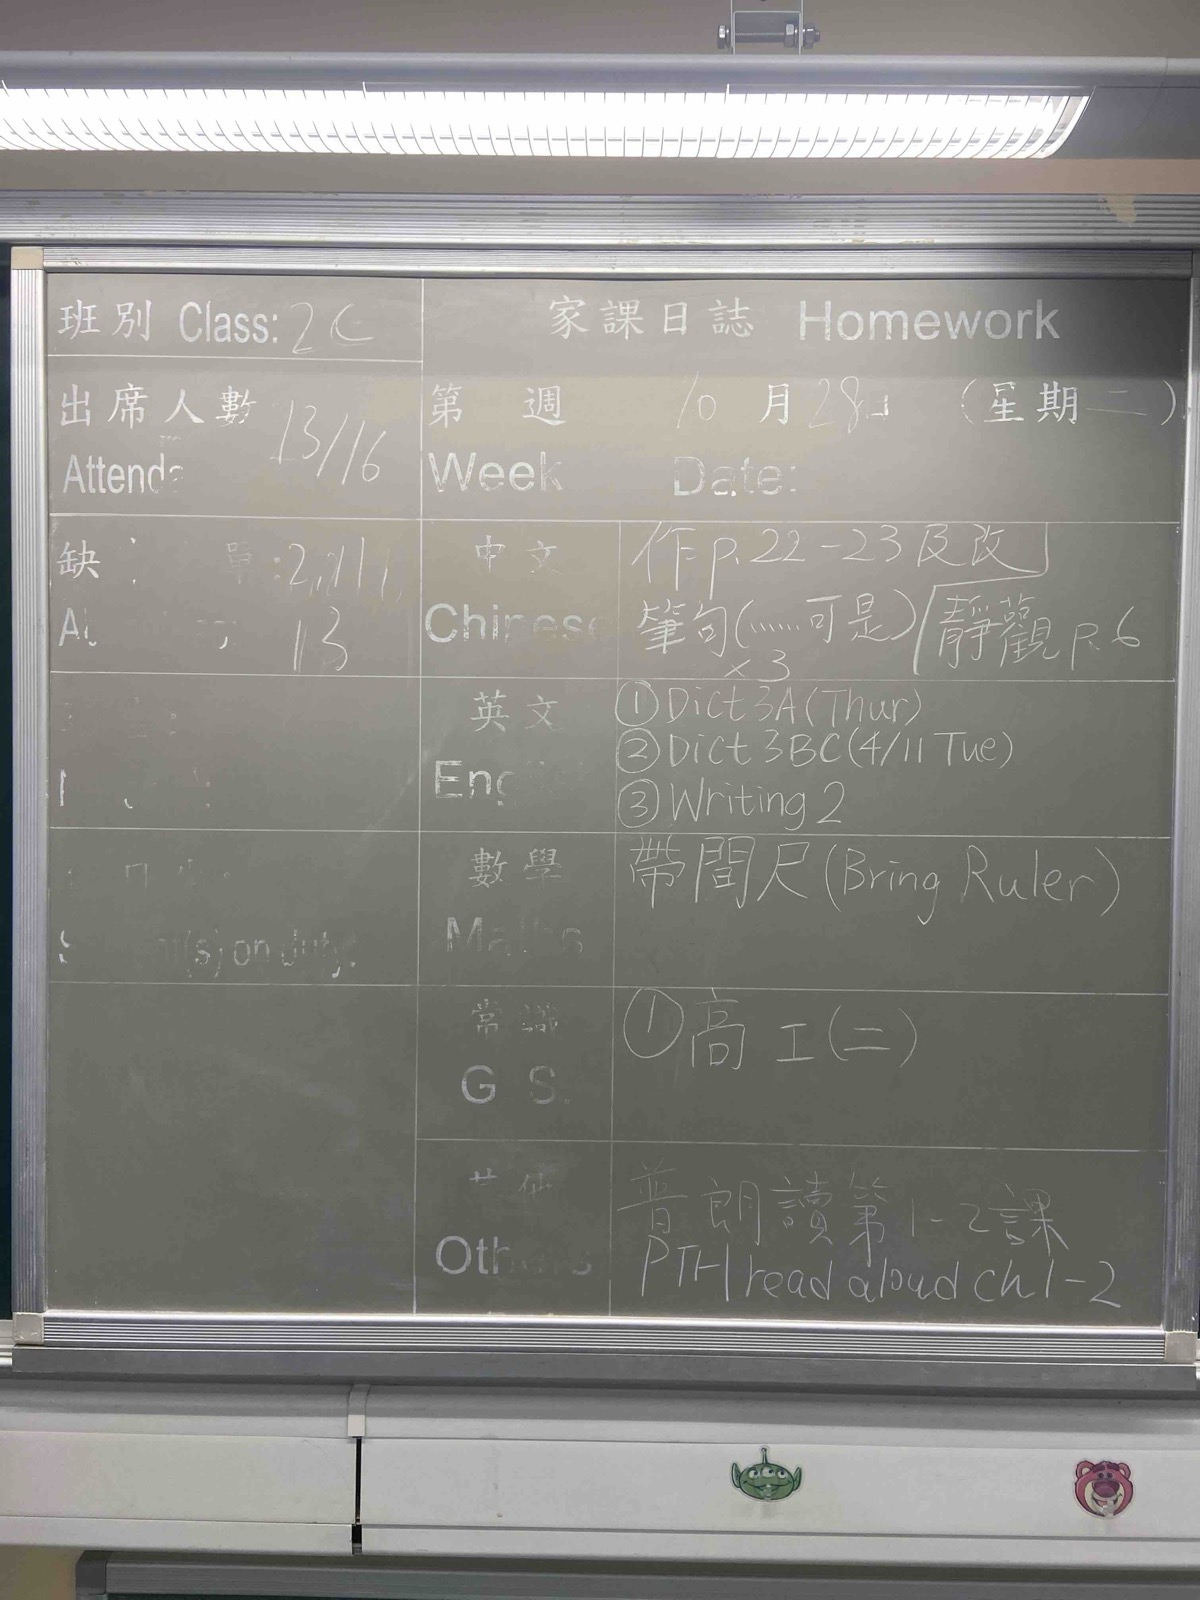 班別 Class: 2C
家課日誌 Homework
出席人數 13/16
Attend
第 週 10月28日 (星期二)
Week Date:
缺 單:2,11,
13
中文
Chinese
作p.22-23及改
筆句(......可是) 靜觀p.6
x3
英文
Eng
①Dict 3A(Thur)
②Dict 3BC(4/11 Tue)
③Writing 2
數學
Maths
帶間尺(Bring Ruler)
(s) on duty:
常識
G. S.
①高工(二)
Others
普朗讀第1-2課
PTH read aloud ch1-2